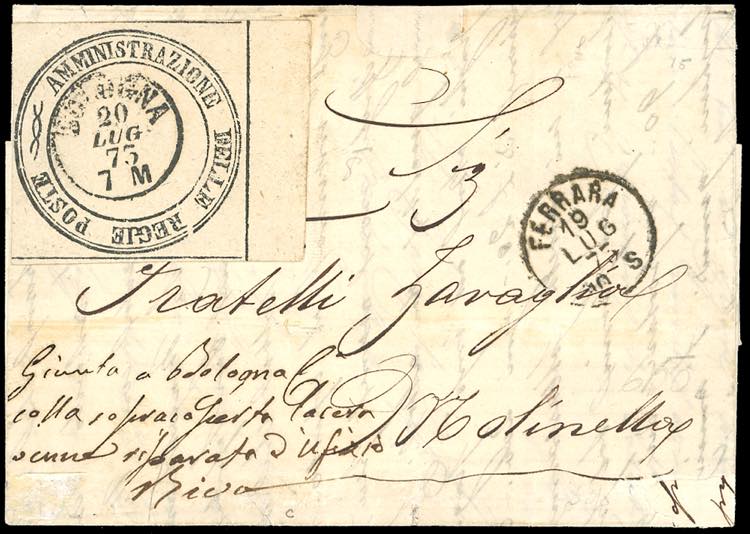 AMMINISTRAZIONE DELLE REGIE POSTE
BOLOGNA
20
LUG
75
7 M
FERRARA
19
LUG
10 S
Fratelli Zavaglia
Molinella
Giunta a Bologna
colla sopracoperta lacera
venne riparata d'Ufizio
Riva